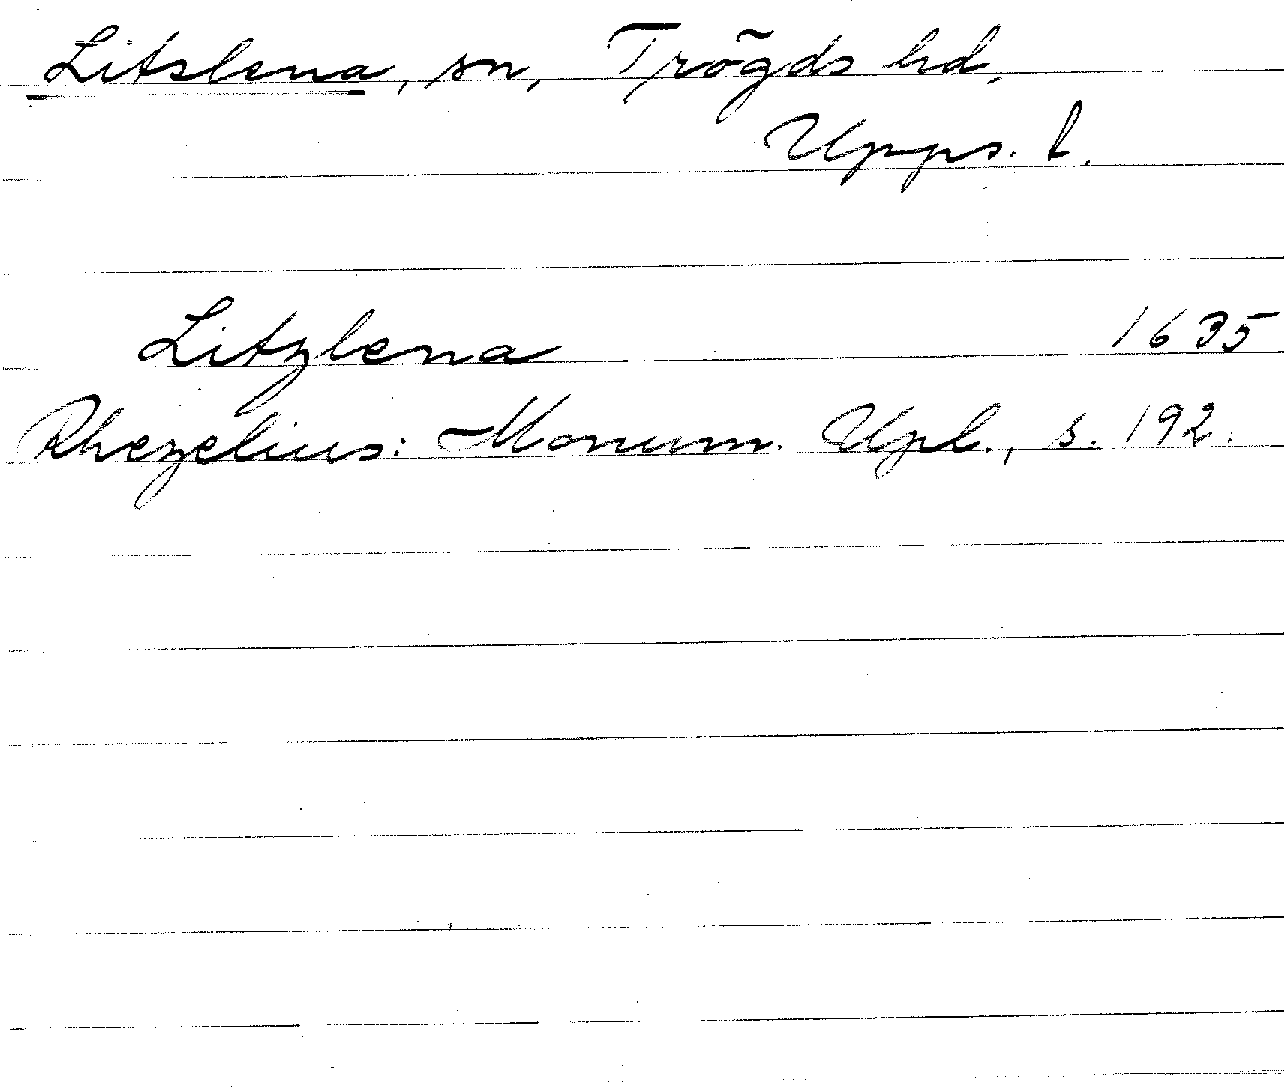 Litslena, sn, Trögds hd,
Upps. l.
Litzlena 1635
Rhezelius: Monum. Upl., s. 192.